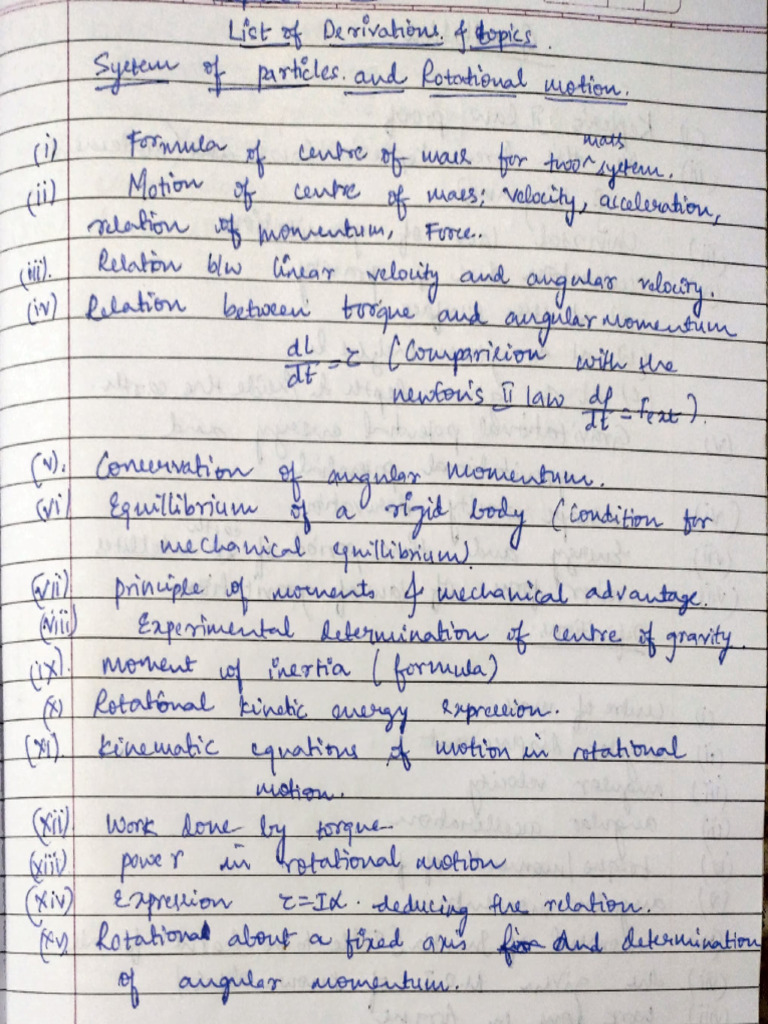 List of Derivations & topics.
System of particles and Rotational motion.
(i) Formula of centre of mass for two mass system.
(ii) Motion of centre of mass; velocity, acceleration,
relation of momentum, Force.
(iii). Relation b/w linear velocity and angular velocity.
(iv) Relation between torque and angular momentum
dL/dt = τ (Comparision with the
newton's II law dp/dt = Fext).
(v). Conservation of angular momentum.
(vi) Equillibrium of a rigid body (condition for
mechanical equillibrium)
(vii) principle of moments & mechanical advantage.
(viii) Experimental determination of centre of gravity.
(ix). moment of inertia (formula)
(x) Rotational kinetic energy expression.
(xi). kinematic equations of motion in rotational
motion.
(xii) work done by torque
(xiii) power in rotational motion
(xiv) Expression τ=Iα. deducing the relation.
(xv) Rotational about a fixed axis and determination
of angular momentum.